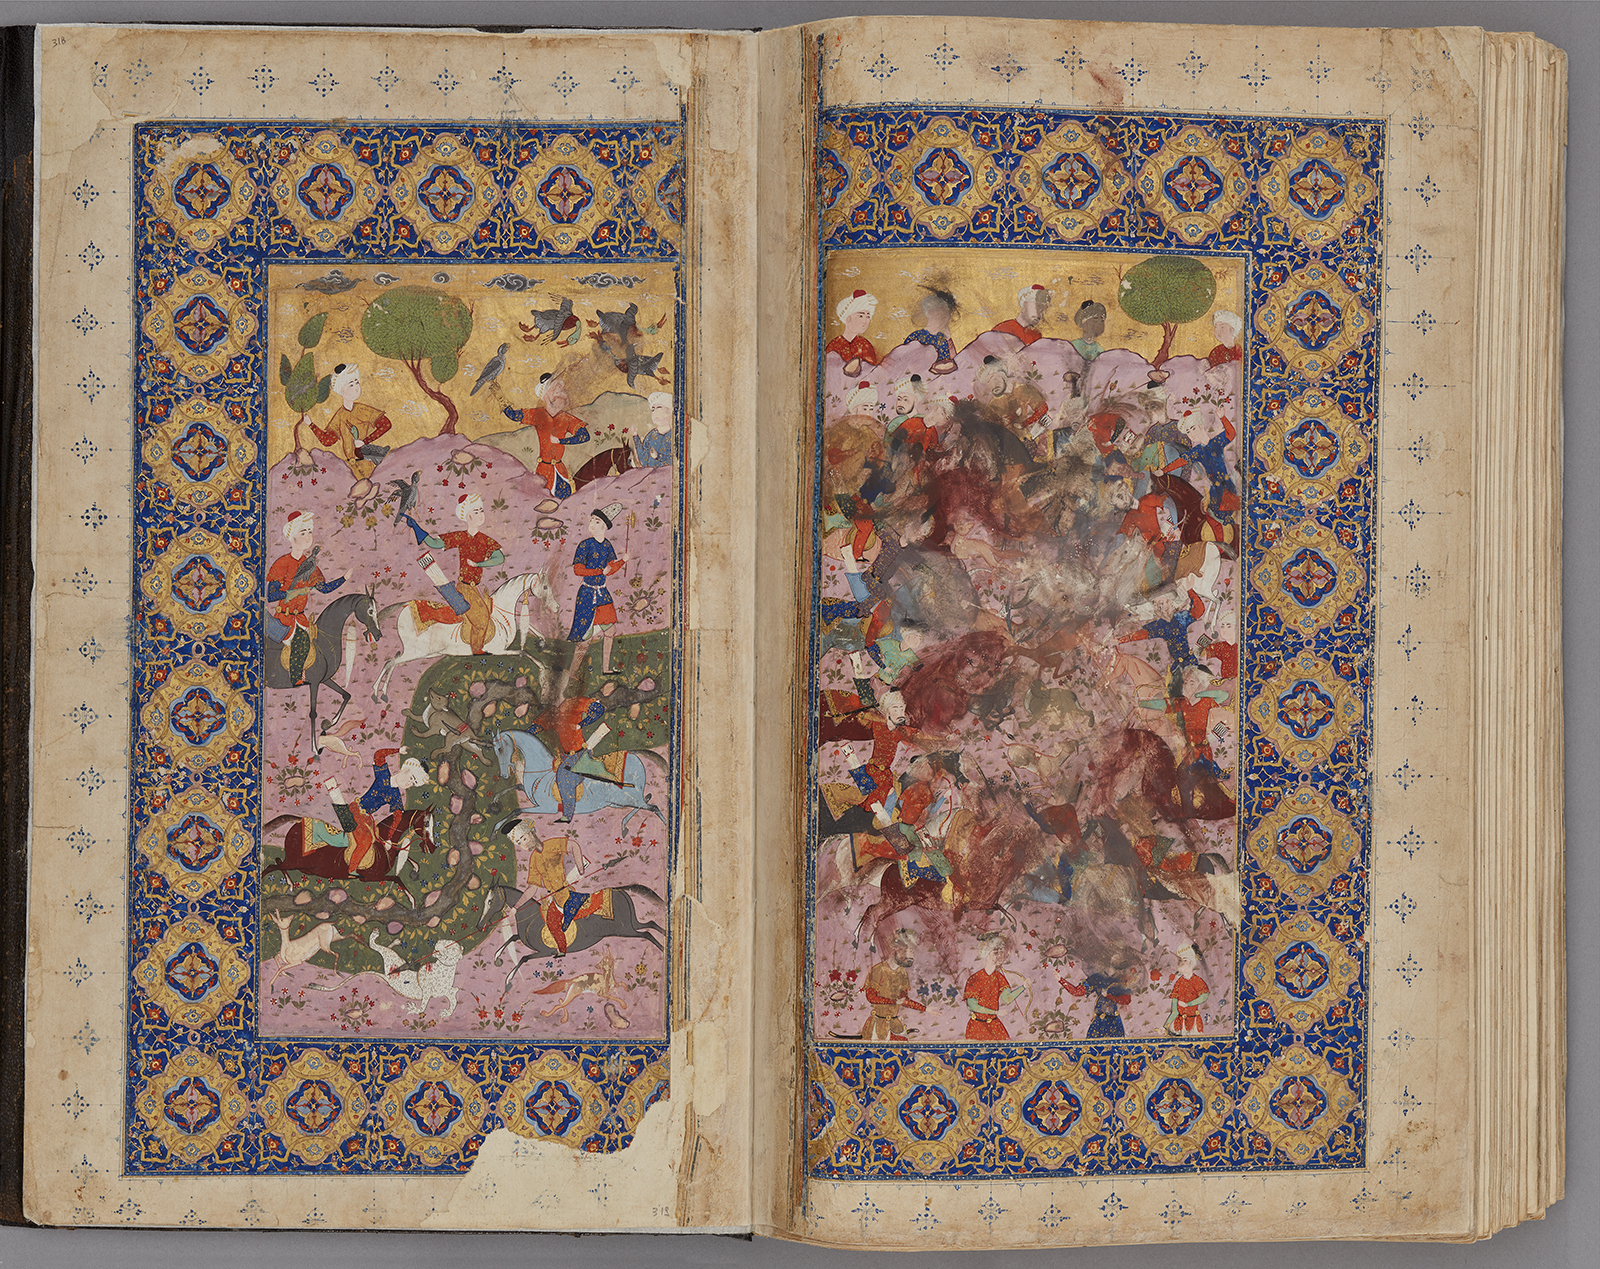 318
318